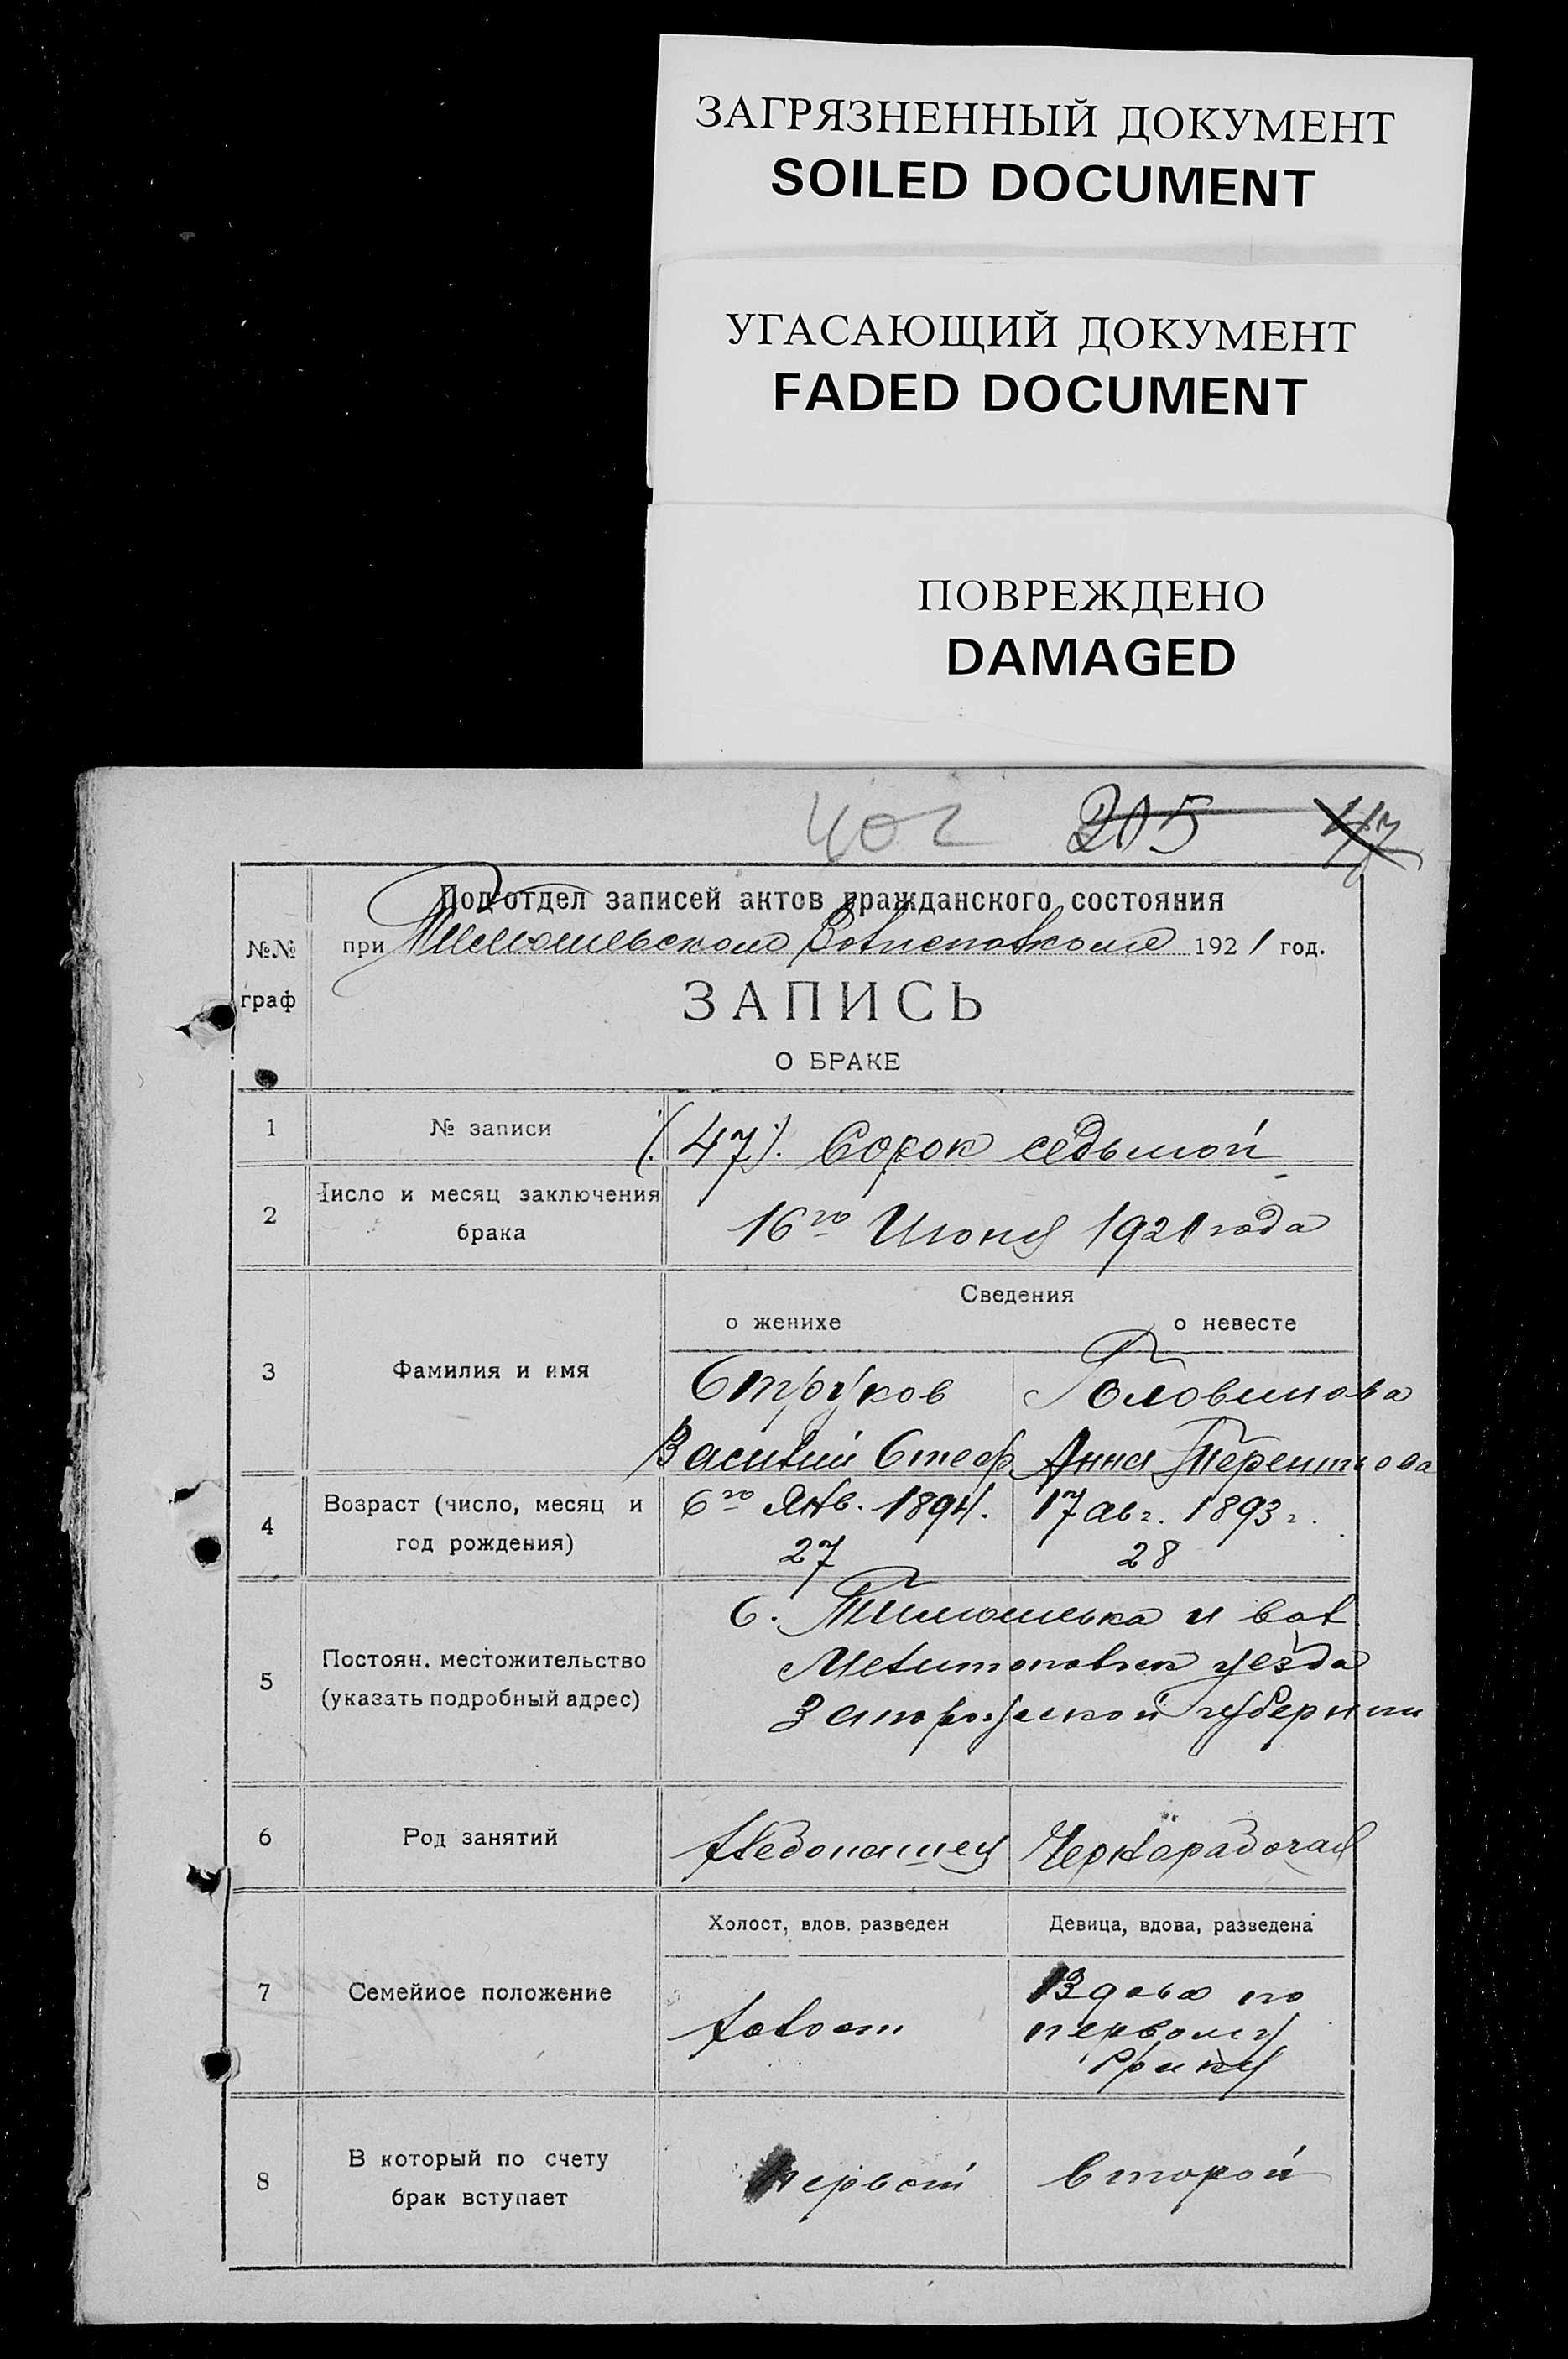 ЗАГРЯЗНЕННЫЙ ДОКУМЕНТ
SOILED DOCUMENT
УГАСАЮЩИЙ ДОКУМЕНТ
FADED DOCUMENT
ПОВРЕЖДЕНО
DAMAGED
402 205 47
Подотдел записей актов гражданского состояния
№№ граф
при Тимошевском Волисполкоме 1921 год.
ЗАПИСЬ
О БРАКЕ
1 № записи (47). Сорок седьмой
2 Число и месяц заключения
брака
16го Июня 1921 года
Сведения
о женихе о невесте
3 Фамилия и имя
Струков Головинова
Василий Стеф. Анна Терентиова
4 Возраст (число, месяц и
год рождения)
6го Янв. 1894. 17 авг. 1893 г.
27 28
5 Постоян. местожительство
(указать подробный адрес)
С. Тимошовка и вол
Мелитополск уезда
Запорожской губернии
6 Род занятий
Хлебопашец Чернорабочая
7 Семейное положение
Холост, вдов. разведен Девица, вдова, разведена
холост
Вдова по
первому
браку
8 В который по счету
брак вступает
первый второй